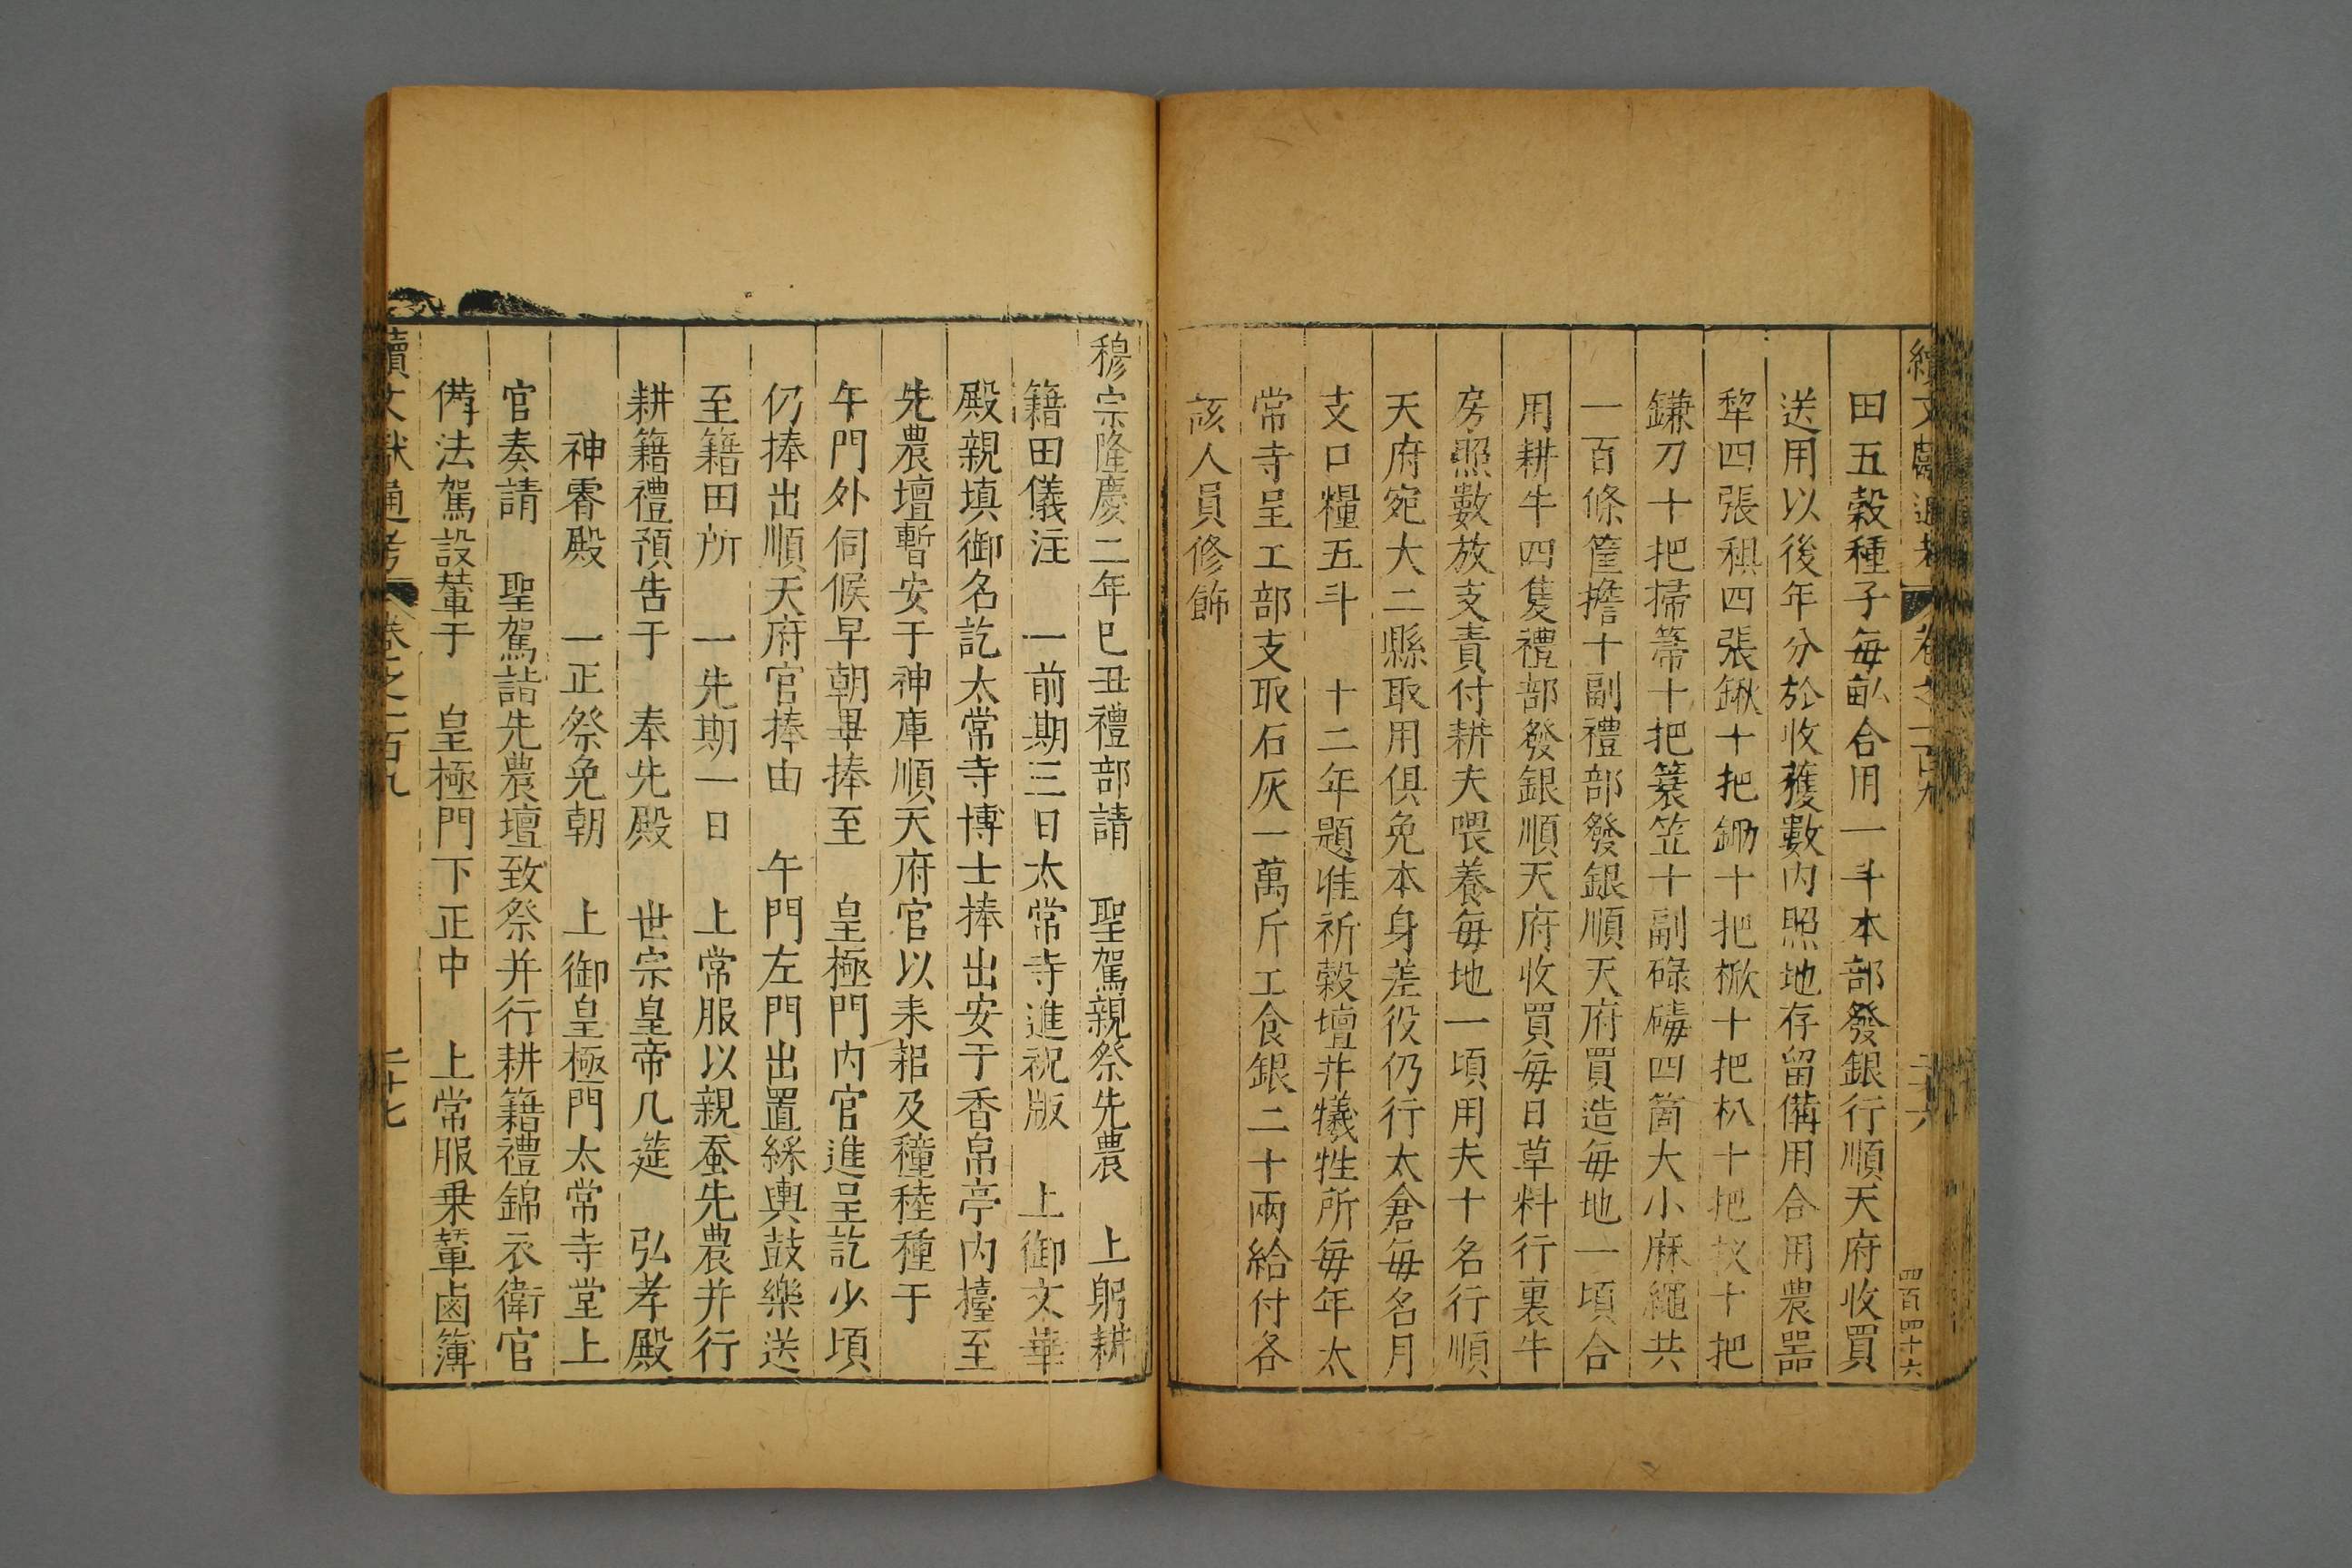 續文獻通考 卷之一百九 二十六 四百四十六
田五穀種子每畝合用一斗本部發銀行順天府收買
送用以後年分於收穫數內照地存留備用合用農噐
犂四張耝四張鍬十把鋤十把掀十把朳十把杈十把
鐮刀十把掃箒十把簑笠十副碌碡四箇大小麻繩共
一百條筐擔十副禮部發銀順天府買造每地一頃合
用耕牛四隻禮部發銀順天府收買每日草料行裏牛
房照數放支責付耕夫喂養每地一頃用夫十名行順
天府宛大二縣取用俱免本身差役仍行太倉每名月
支口糧五斗 十二年題准祈穀壇并犧牲所每年太
常寺呈工部支取石灰一萬斤工食銀二十兩給付各
該人員修飾
穆宗隆慶二年巳丑禮部請 聖駕親祭先農 上躬耕
籍田儀注 一前期三日太常寺進祝版 上御文華
殿親填御名訖太常寺博士捧出安于香帛亭內擡至
先農壇暫安于神庫順天府官以耒耜及穜稑種于
午門外伺候早朝畢捧至 皇極門內官進呈訖少頃
仍捧出順天府官捧由 午門左門出置綵輿鼓樂送
至籍田所 一先期一日 上常服以親蚕先農并行
耕籍禮預告于 奉先殿 世宗皇帝几筵 弘孝殿
神霄殿 一正祭免朝 上御皇極門太常寺堂上
官奏請 聖駕詣先農壇致祭并行耕籍禮錦衣衛官
備法駕設輦于 皇極門下正中 上常服乗輦鹵簿
續文獻通考 卷之一百九 二十七